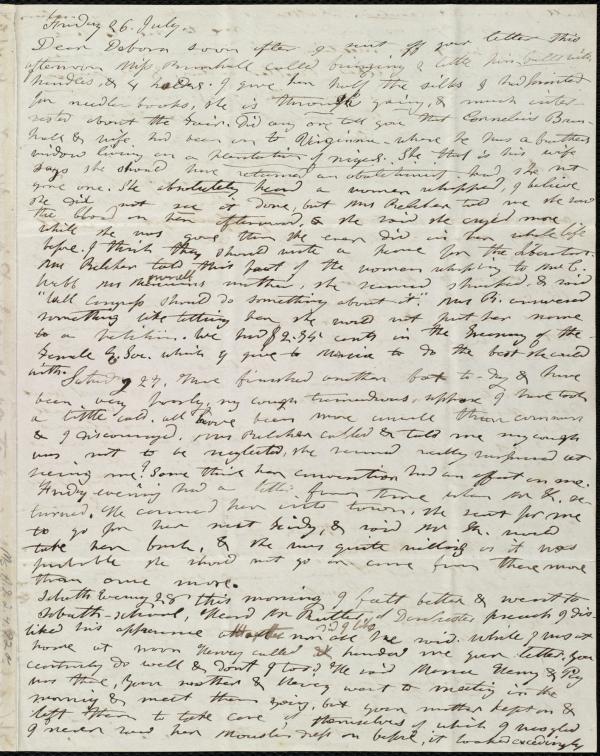 Friday 26 July.
Dear Deborah soon after I sent off your letter this
afternoon Miss Brimhall called bringing 2 little
needles, & 4 I gave her half the silks I had
for needle books, she is through going, & much inter-
ested about the Fair. Did any one tell you that Cornelius Bram-
hall & wife had been on to Virginia where he has a brothers
widow living on a plantation of niggers. She that is his wife
says she should have returned an abolitionist had she not
gone one. She absolutely heard a woman whipped, I believe
she did not see it done, but Mrs Belcher told me she saw
the blood on her afterward, & she said she cryed more
while she was gone than she ever did in her whole life
before. I think they should write a piece for the Liberator.
Mrs Belcher told this part of the woman whipping to Mrs C.
Webb Mrs mother, she seemed shocked, & said
"well congress should do something about it" Mrs B. answered
something like telling her she would not put her name
to a petition. We had $2.34 cents in the Treasury of the
Female A. Soc. which I give to Maria to do the best she could
with.
Saturday 27. Have finished another box to-day & have
been very poorly, my cough tremendous, suppose I have took
a little cold. all have been more than common
& I discouraged. Mrs Belcher called & told me my cough
was not to be neglected, she seemed really surprised at
seeing me. Some think her convention had an effect on me.
Friday evening had a letter from home when Mr K. re-
turned. He carried her into town, she sent for me
to go for her next Friday, & said Mr K. would
take her back, & she was quite willing as it was
probable she should not go or come from there more
than once more.
Sabbath Evening 28 this morning I felt better & went to
Sabbath-school, heard Mr of Dorchester preach I dis-
liked his appearance nor all he said. While I was at
home at noon Henry called & handed me your letter, you
certainly do well & dont I too? He said Maria Henry &
was there, your mother & Henry went to meeting in the
morning & meet them going, but your mother kept on &
left them to take care of themselves of which I was glad
I never saw her Mouslin dress on before, it looked exceedingly